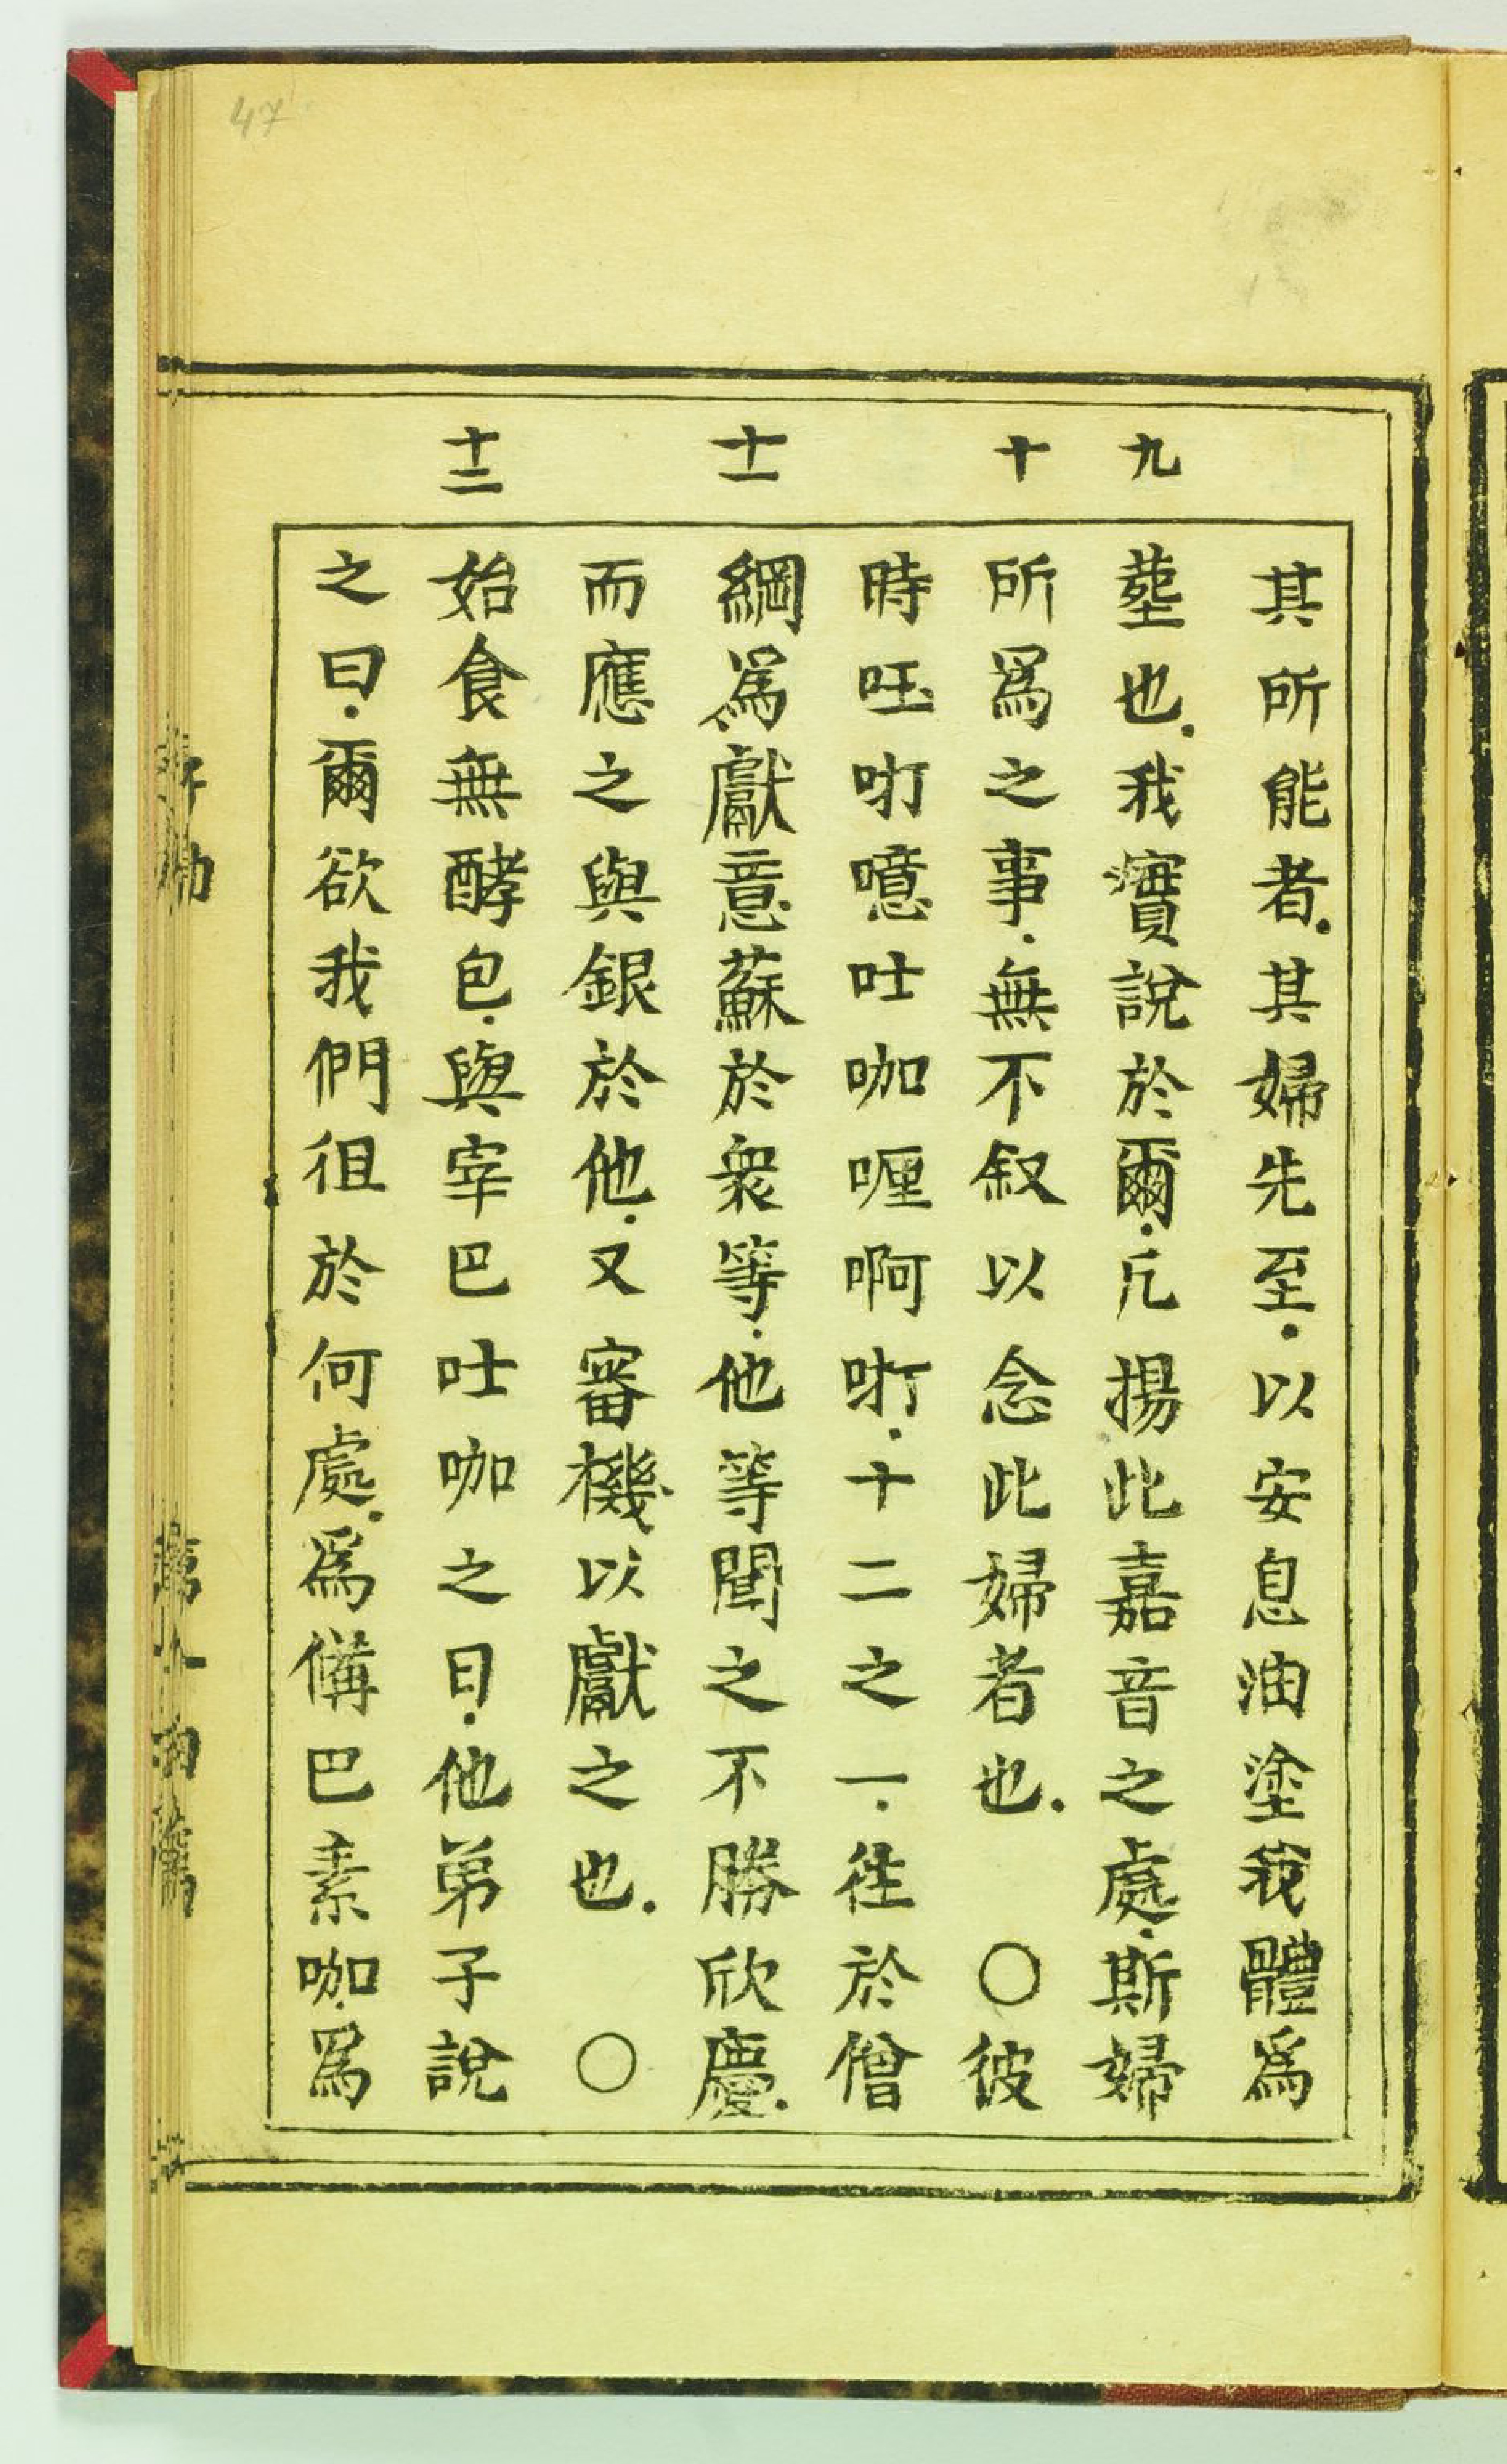 47
九
十
十一
十二
其所能者.其婦先至.以安息油塗我體爲
塟也.我實說於爾.凢揚此嘉音之處.斯婦
所爲之事.無不叙以念此婦者也.〇彼
時𠰃𠯈噫吐咖喱啊𠯈.十二之一.徃於僧
綱爲獻意蘇於衆等.他等聞之不勝欣慶.
而應之與銀於他.又審機以獻之也.〇
始食無酵包.與宰巴吐咖之日.他弟子說
之曰.爾欲我們徂於何處.爲備巴素咖.爲